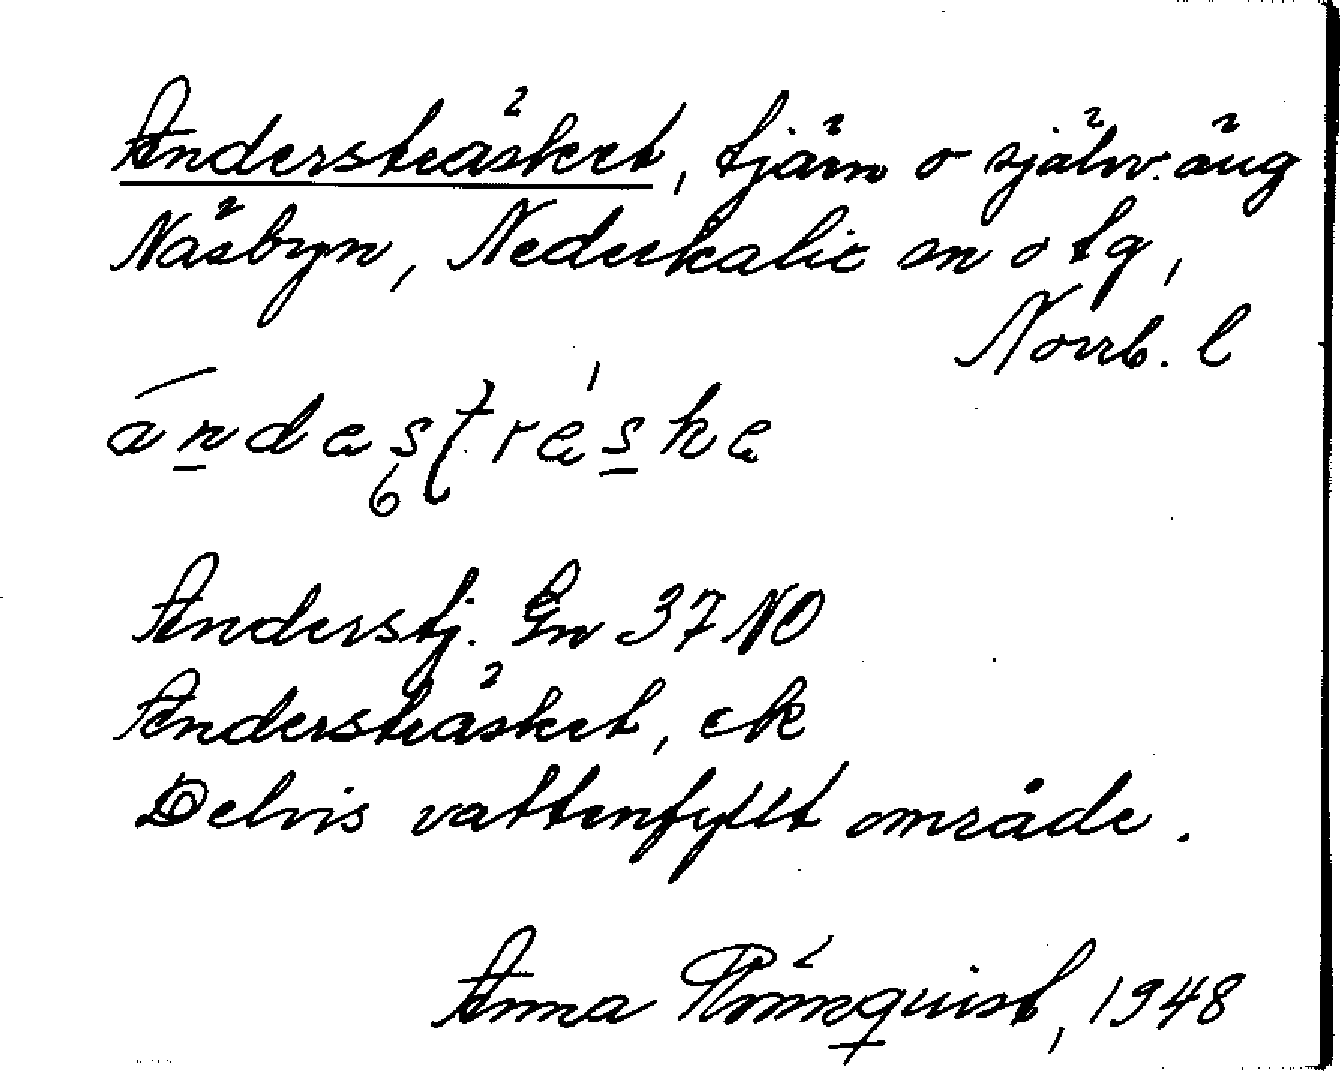 Andersträsket, tjärn o självv. äng
Näsbyn, Nederkalix sn o tg,
Norrb. l
ándestræ̀ske
Anderstj. Gn 37 NO
Andersträsket, ek
Delvis vattenfyllt område.
Anna Rönnquist, 1948